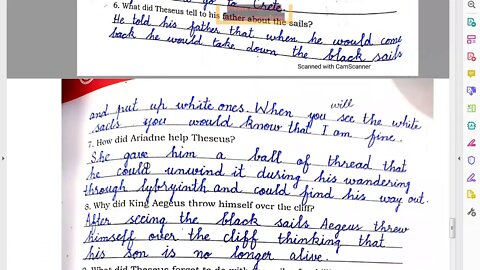 go to Crete.
6. What did Theseus tell to his father about the sails?
He told his father that when he would come
back he would take down the black sails
Scanned with CamScanner
and put up white ones. When you will see the white
sails you would know that I am fine.
7. How did Ariadne help Theseus?
She gave him a ball of thread that
he could unwind it during his wandering
through lybryinth and could find his way out.
8. Why did King Aegeus throw himself over the cliff?
After seeing the black sails Aegeus threw
himself over the cliff thinking that
his son is no longer alive.
What did Theseus forget to do with